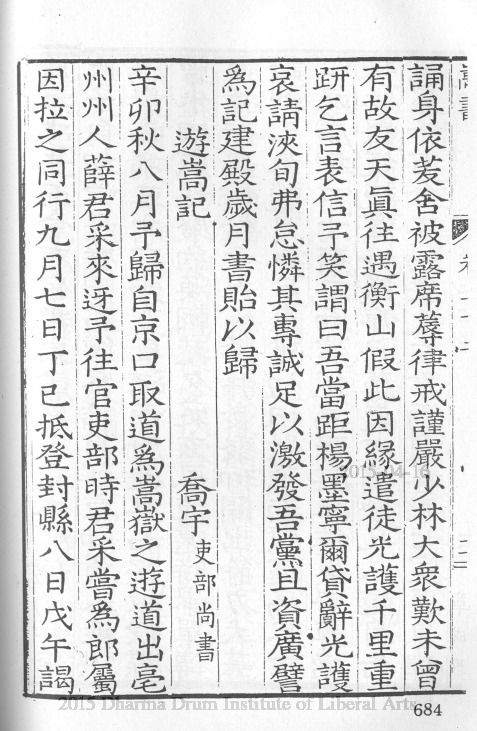 誦身依茇舍被露席蓐律戒謹嚴少林大衆歎未曾
有故友天眞往遇衡山假此因緣遣徒光護千里重
趼乞言表信予笑謂曰吾當距楊墨寧爾貸辭光護
哀請浹旬弗怠憐其專誠足以激發吾黨且資廣譬
為記建殿歲月書貽以歸
遊嵩記 喬宇吏部尚書
辛卯秋八月予歸自京口取道為嵩嶽之遊道出亳
州州人薛君采來迓予往官吏部時君采嘗為郎屬
因拉之同行九月七日丁巳抵登封縣八日戊午謁
2015-04-16
2015 Dharma Drum Institute of Liberal Arts
684